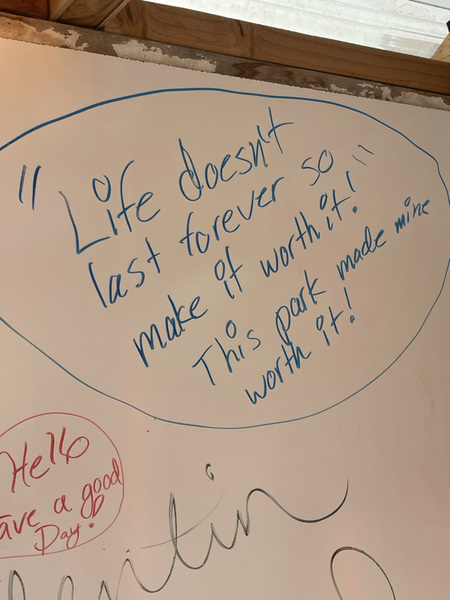 "Life doesn't
last forever so
make it worth it!"
This park made mine
worth it!
Hello
ave a good
Day!
entin